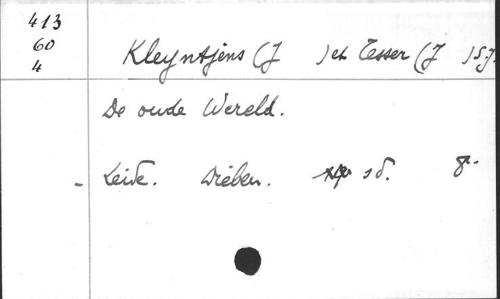 413
60
4
Kleyntjens (J ) et Tesser (J ) S.J.
De oude Wereld.
- Leide. Dieben. sd. 8°.